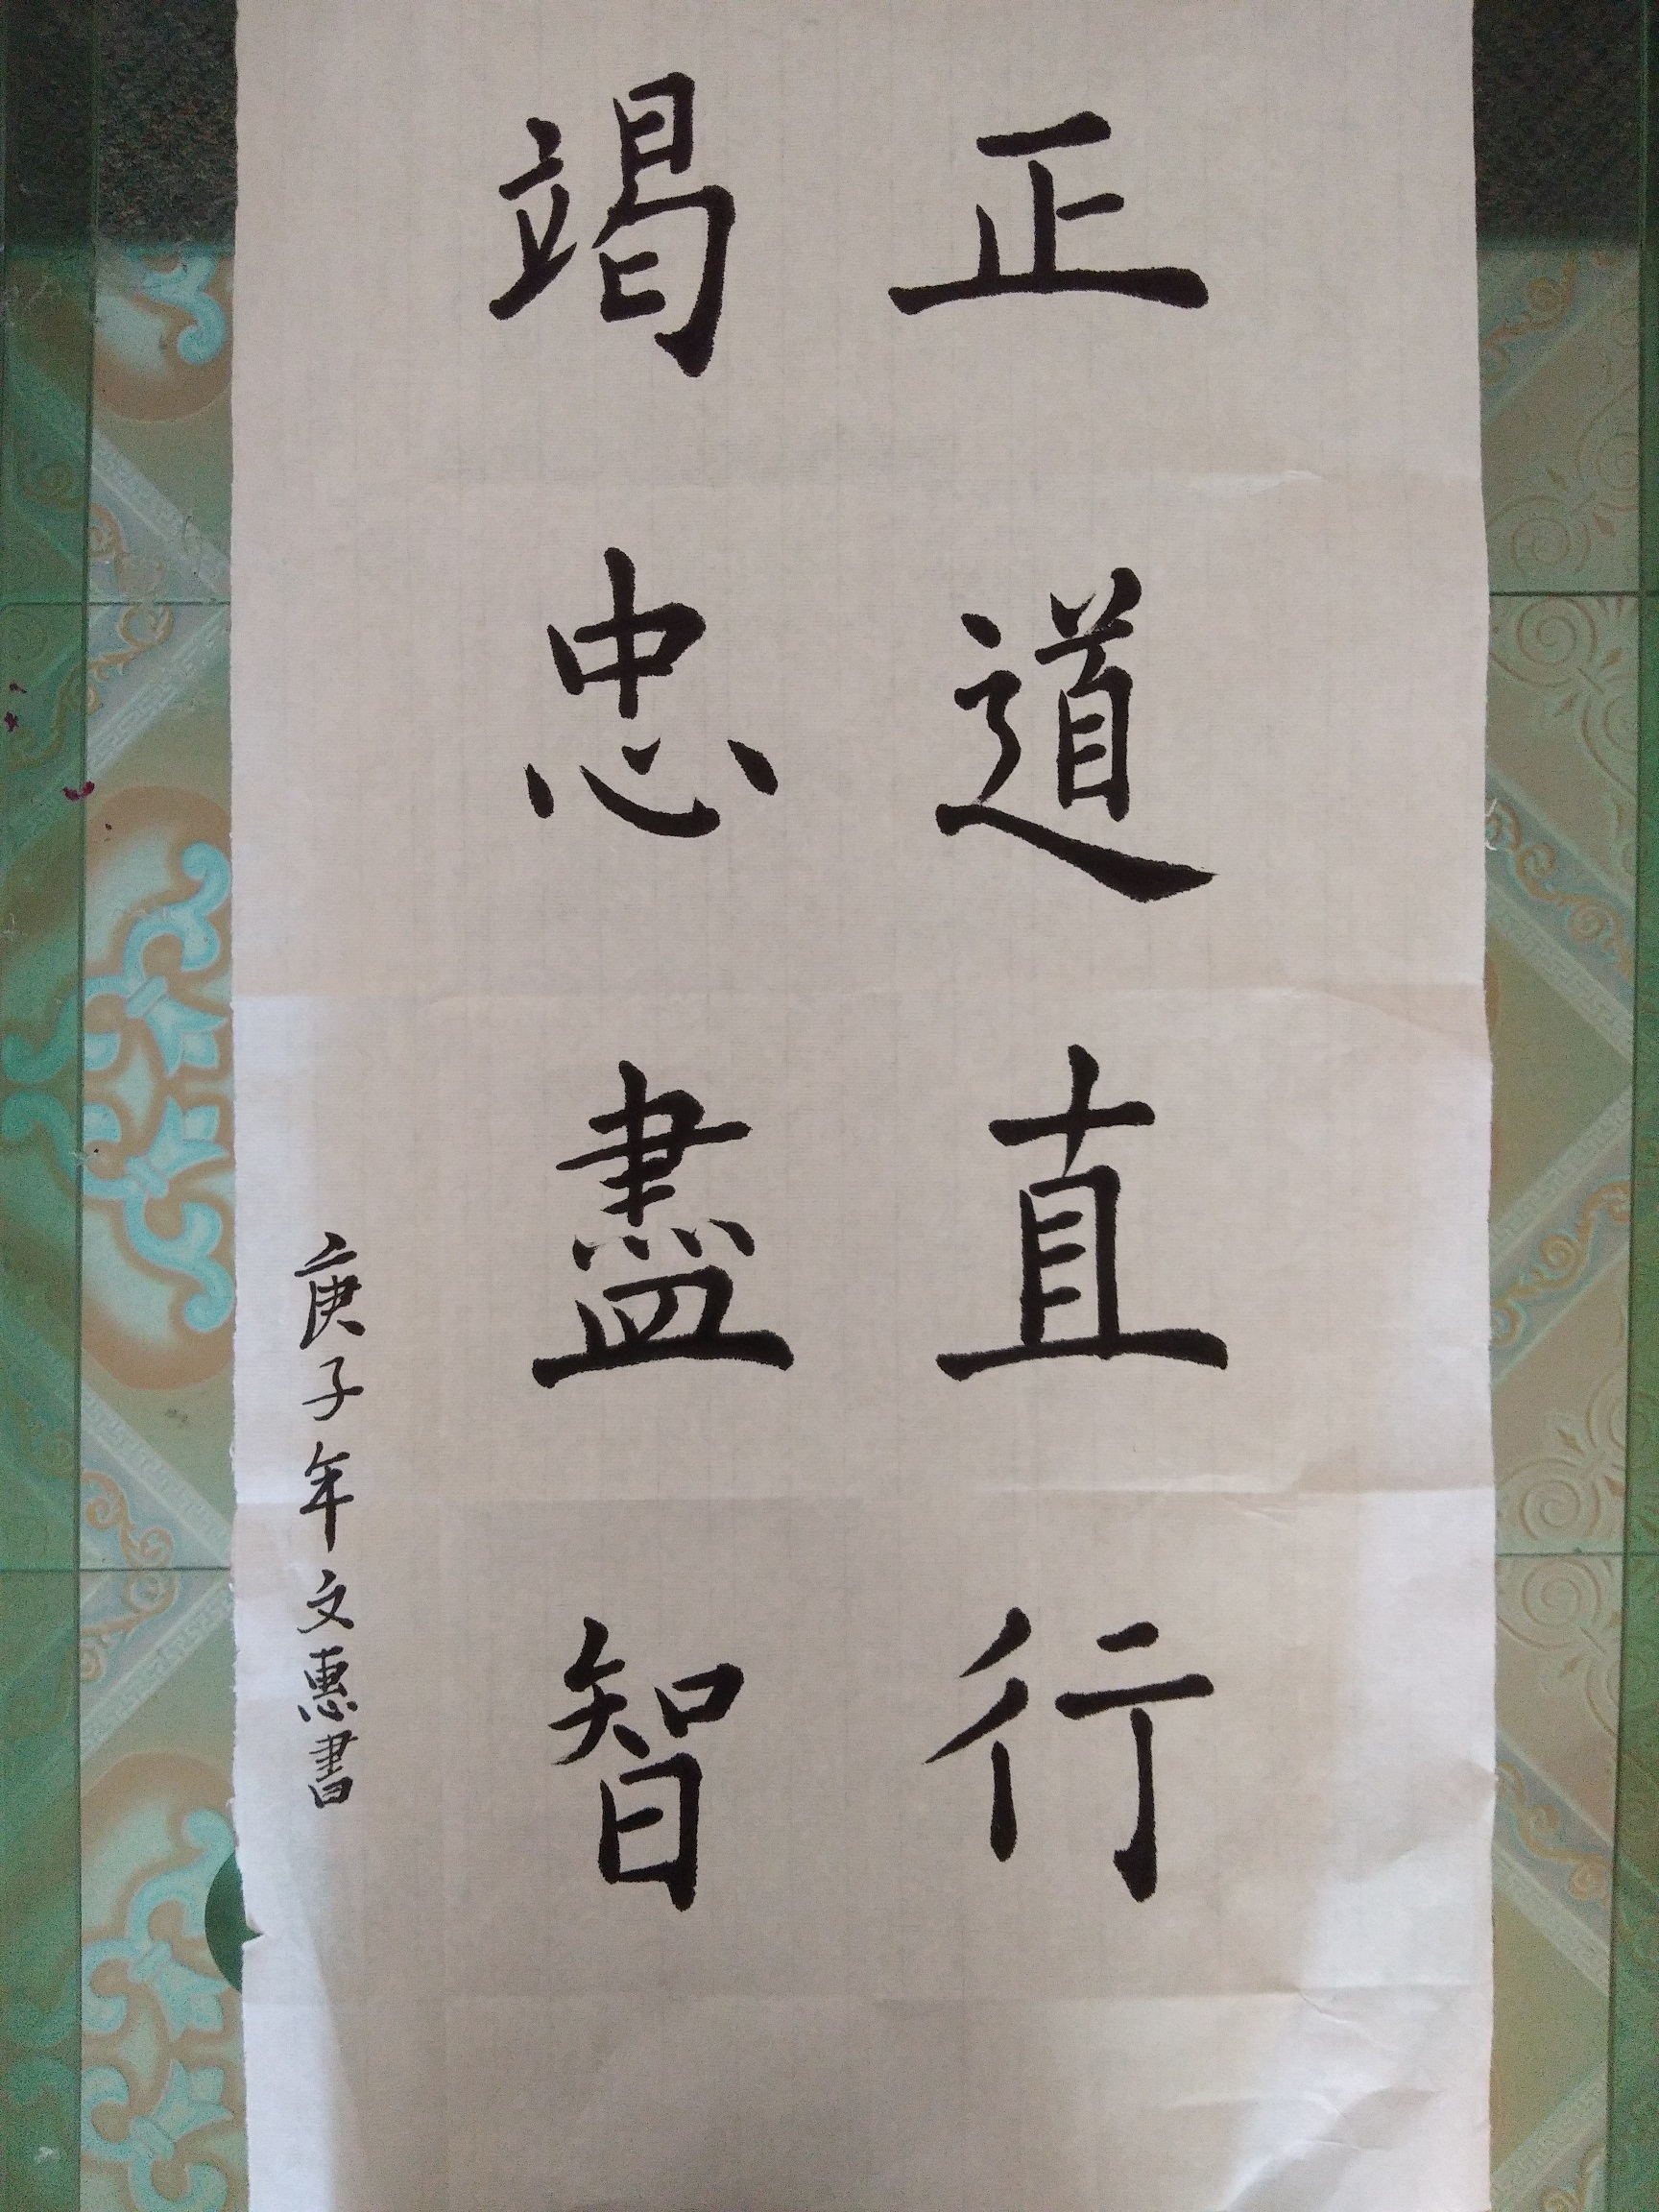 正道直行
竭忠盡智
庚子年文惠書